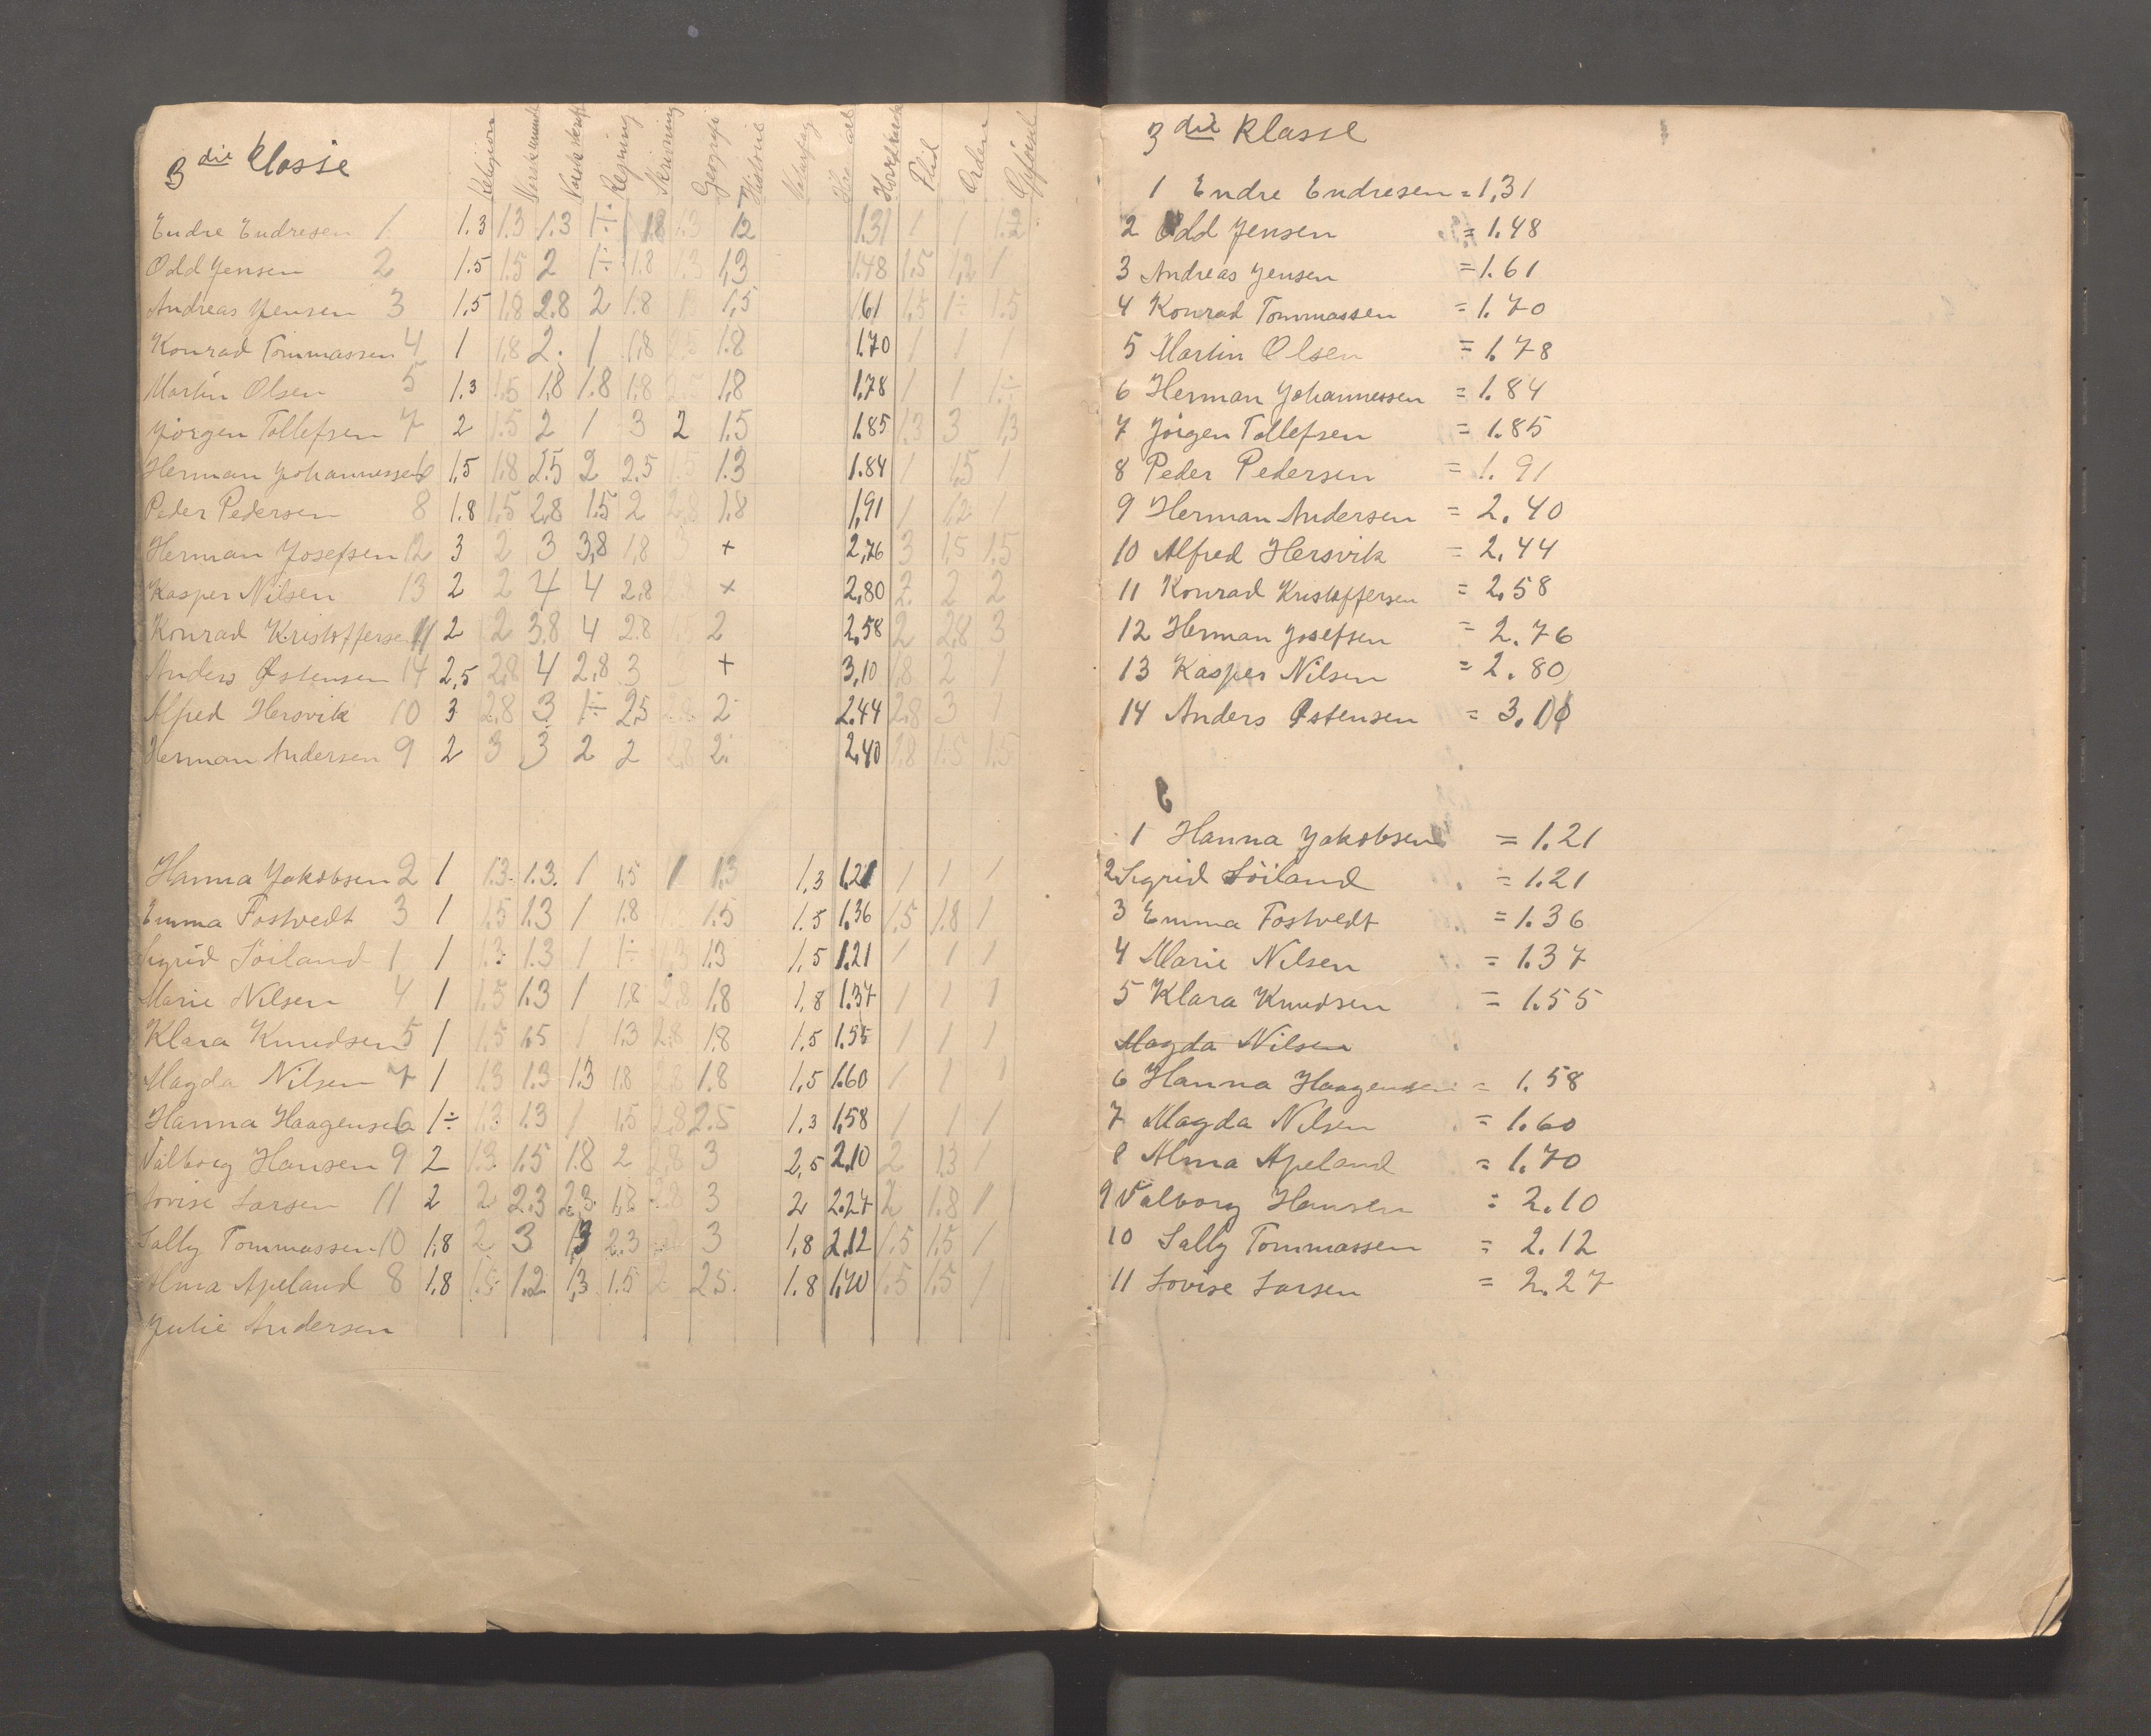 3die klasse
Religion Regning Skrivning Geografi Historie Flid Orden Opförsel
Endre Endresen 1 1.3 1.3 1.3 1÷ 1.8 1.3 1.2 1.31 1 1 1.2
Odd Jensen 2 1.5 1.5 2 1÷ 1.8 1.3 1,3 1.48 1.5 1,2 1
Andreas Jensen 3 1,5 1,8 2.8 2 1.8 1,5 1.61 1.5 1÷ 1.5
Konrad Tommassen 4 1 1,8 2. 1 1,8 2.5 1.8 1.70 1 1 1
Martin Olsen 5 1.3 1.5 1,8 1.8 1,8 2.5 1,8 1,78 1 1 1÷
Jörgen Tollefsen 7 2 1.5 2 1 3 2 1.5 1.85 1.3 3 1,3
Herman Johannessen 6 1,5 1,8 2.5 2 2.5 1.5 1.3 1.84 1 1,5 1
Peder Pedersen 8 1.8 1,5 2,8 1.5 2 2,8 1.8 1,91 1 1,2 1
Herman Josefsen 12 3 2 3 3,8 1,8 3 + 2,76 3 1,5 1.5
Kasper Nilsen 13 2 2 4 4 2,8 2.8 x 2,80 2. 2 2
Konrad Kristoffersen 11 2 2 3.8 4 2.8 1.5 2 2,58 2 2,8 3
Anders Østensen 14 2,5 2,8 4 2,8 3 3 + 3,10 1,8 2 1
Alfred Hersvik 10 3 2.8 3 1÷ 2,5 2.8 2 2.44 2.8 3 1
Herman Andersen 9 2 3 3 2 2 2,8 2. 2,40 1.8 1.5 1.5
Hanna Jakobsen 2 1 1.3. 1.3. 1 1,5 1 1,3 1,3 1.21 1 1 1
Emma Fostvedt 3 1 1.5 1.3 1 1.8 1.5 1.5 1,36 1.5 1.8 1
Sigrid Söiland 1 1 1.3 1.3 1 1÷ 1.3 1.3 1,5 1.21 1 1 1
Marie Nilsen 4 1 1.5 1.3 1 1.8 2.8 1,8 1,8 1.37 1 1 1
Klara Knudsen 5 1 1.5 1.5 1 1,3 2.8 1.8 1,5 1.55 1 1 1
Magda Nilsen 7 1 1.3 1.3 1.3 1.8 2.8 1.8 1,5 1.60 1 1 1
Hanna Haagensen 6 1÷ 1.3 1.3 1 1.5 2,8 2.5 1.3 1,58 1 1 1
Valborg Hansen 9 2 1.3 1.5 1.8 2 2,8 3 2,5 2.10 2 1,3 1
Lovise Larsen 11 2 2 2.3 2,3 1,8 2.8 3 2 2.27 2 1.8 1
Sally Tommassen 10 1,8 2 3 1,3 2.3 3 1,8 2.12 1.5 1.5 1
Alma Apeland 8 1.8 1.5 1.2. 1,3 1.5 2 2.5. 1.8 1,70 1.5 1.5 1
Julie Andersen
3die klasse
1 Endre Endresen = 1,31
2 Odd Jensen = 1.48
3 Andreas Jensen = 1.61
4 Konrad Tommassen = 1.70
5 Martin Olsen = 1.78
6 Herman Johannessen = 1.84
7 Jörgen Tollefsen = 1.85
8 Peder Pedersen = 1.91
9 Herman Andersen = 2.40
10 Alfred Hersvik = 2.44
11 Konrad Kristoffersen = 2.58
12 Herman Josefsen = 2.76
13 Kasper Nilsen = 2.80
14 Anders Østensen = 3.10
1 Hanna Jakobsen = 1.21
2 Sigrid Söiland = 1.21
3 Emma Fostvedt = 1.36
4 Marie Nilsen = 1.37
5 Klara Knudsen = 1.55
Magda Nilsen
6 Hanna Haagensen = 1.58
7 Magda Nilsen = 1.60
8 Alma Apeland = 1.70
9 Valborg Hansen = 2.10
10 Sally Tommassen = 2.12
11 Lovise Larsen = 2.27